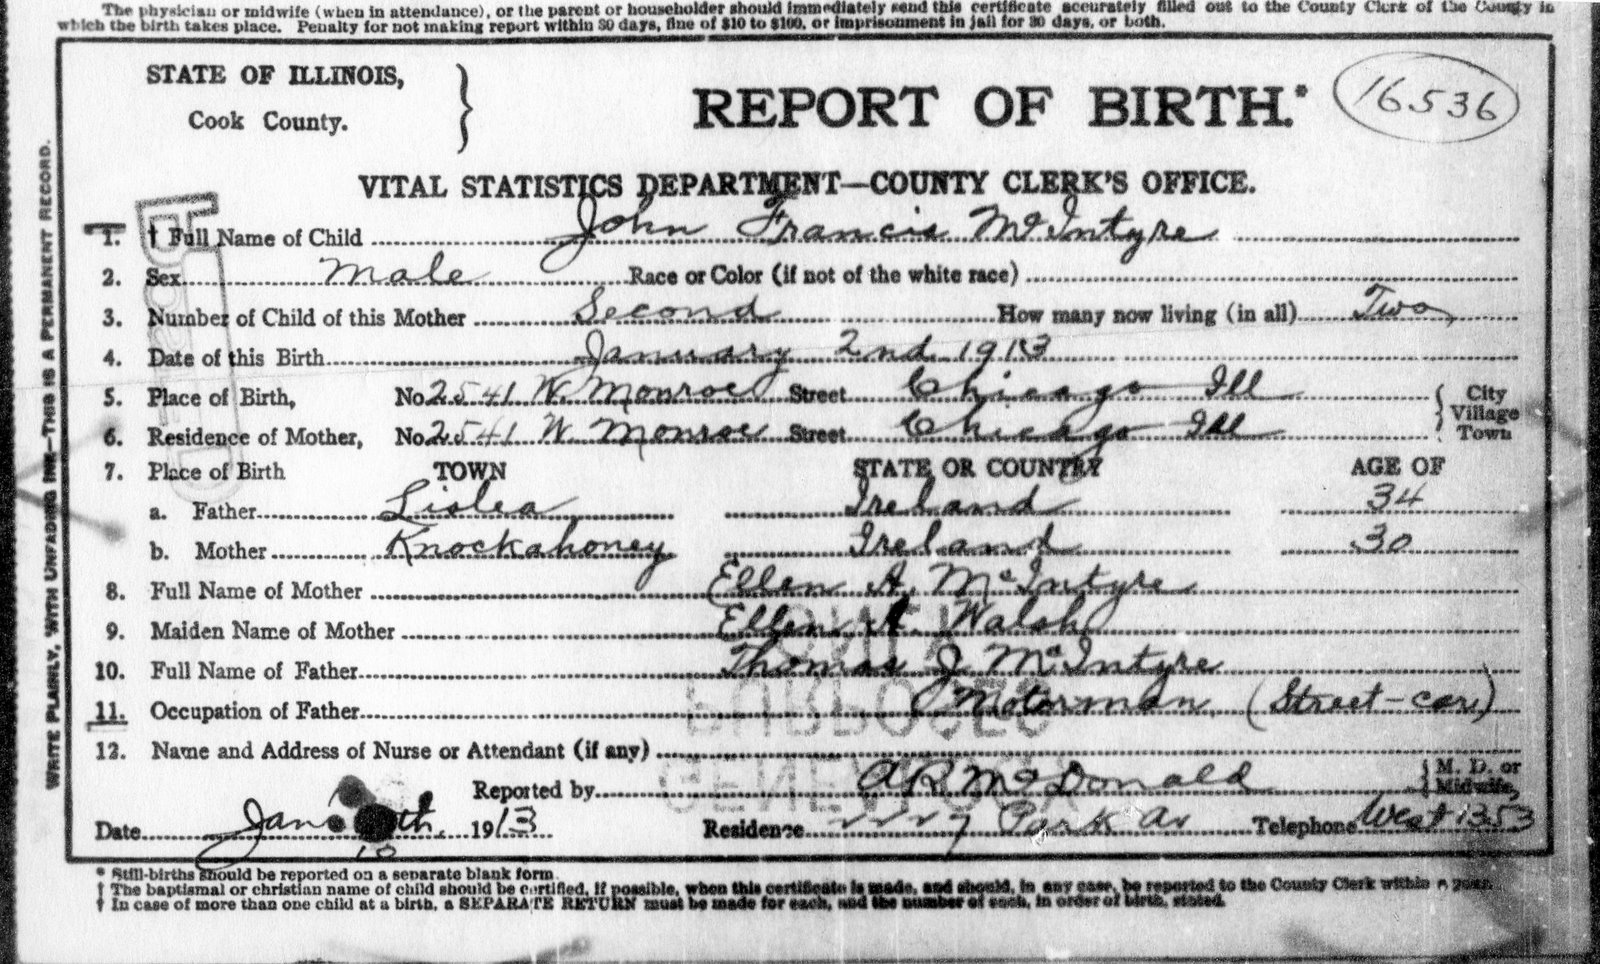 The physician or midwife (when in attendance), or the parent or householder should immediately send this certificate accurately filled out to the County Clerk of the County in
which the birth takes place. Penalty for not making report within 30 days, fine of $10 to $100, or imprisonment in jail for 30 days, or both.
STATE OF ILLINOIS,
Cook County.
REPORT OF BIRTH.*
16536
VITAL STATISTICS DEPARTMENT—COUNTY CLERK'S OFFICE.
WRITE PLAINLY, WITH UNFADING INK—THIS IS A PERMANENT RECORD.
1. † Full Name of Child John Francis McIntyre
2. Sex Male Race or Color (if not of the white race)
3. Number of Child of this Mother Second How many now living (in all) Two
4. Date of this Birth January 2nd 1913
5. Place of Birth, No. 2541 W. Monroe Street Chicago Ill
6. Residence of Mother, No. 2541 W. Monroe Street Chicago Ill
City Village Town
7. Place of Birth TOWN STATE OR COUNTRY AGE OF
a. Father Lislea Ireland 34
b. Mother Knockahoney Ireland 30
8. Full Name of Mother Ellen A. McIntyre
9. Maiden Name of Mother Ellen A. Walsh
10. Full Name of Father Thomas J McIntyre
11. Occupation of Father Motorman (Street-car)
12. Name and Address of Nurse or Attendant (if any)
Reported by A R McDonald M. D. or Midwife,
Date Jan 10 th 1913 Residence Park Av Telephone West 1353
* Still-births should be reported on a separate blank form.
† The baptismal or christian name of child should be certified, if possible, when this certificate is made, and should, in any case, be reported to the County Clerk within a year.
† In case of more than one child at a birth, a SEPARATE RETURN must be made for each, and the number of each, in order of birth, stated.